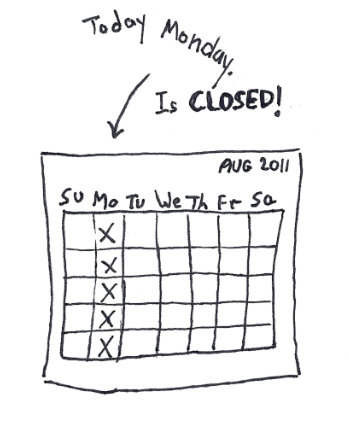 Today Monday.
Is CLOSED!
AUG 2011
Su Mo Tu We Th Fr Sa
X
X
X
X
X